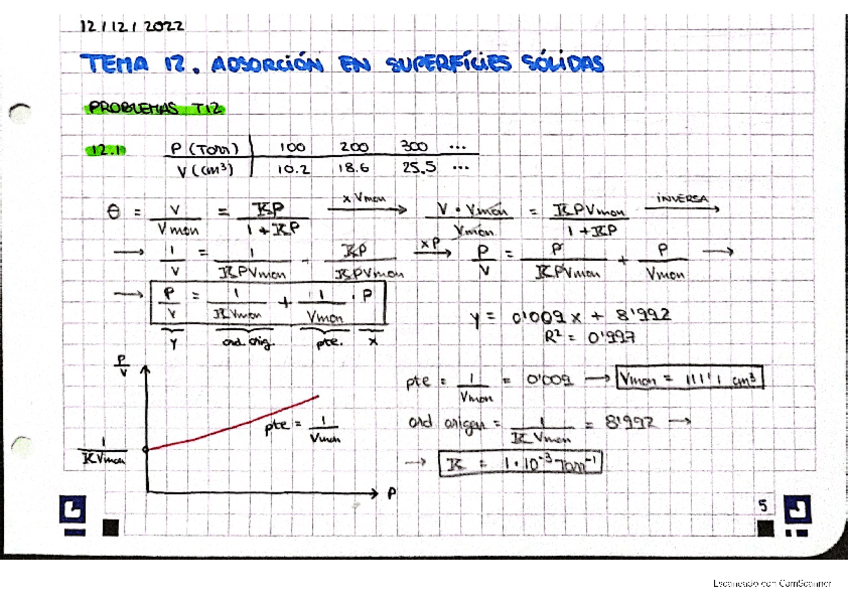 12/12/2022
TEMA 12. ADSORCIÓN EN SUPERFÍCIES SÓLIDAS
PROBLEMAS T12
12.1 P (Torr) 100 200 300 ...
V (cm³) 10.2 18.6 25.5 ...
θ = V/Vmon = KP/1+KP x Vmon → V · Vmon/Vmon = KPVmon/1+KP INVERSA →
→ 1/V = 1/KPVmon + KP/KPVmon xP → P/V = P/KPVmon + P/Vmon →
→ P/V = 1/KVmon + 1/Vmon · P
y ord. orig. pte. x
y = 0'009x + 8'992
R² = 0'997
P/V
pte = 1/Vmon = 0'009 → Vmon = 111'1 cm³
pte = 1/Vmon
ord origen = 1/KVmon = 8'992 →
1/KVmon
→ K = 1·10⁻³ Torr⁻¹
P
5
Escaneado con CamScanner